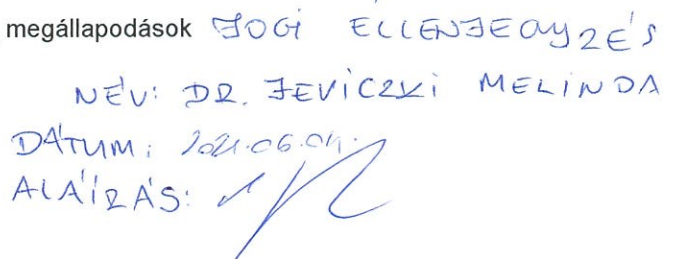 megállapodások JOGI ELLENJEGYZÉS
NÉV: DR. JEVICZKI MELINDA
DÁTUM: 2021.06.04.
ALÁÍRÁS: